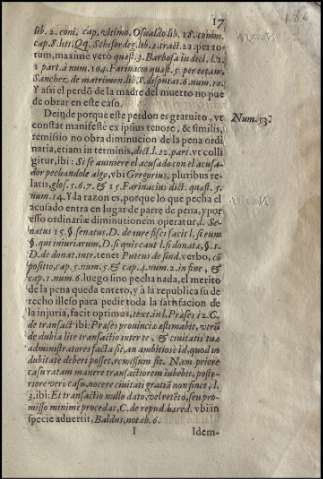 17
lib. 2. coni. cap. vltimo. Osualdo lib. 18. comm.
cap. 8. litt. Qq. Schifordeg. lib. 2. tract. 22. per to-
tum, maxime verò quæst. 3. Barbosa in decl. l. 2.
2. part. à num. 104. Farinaceo quæst. 5. per totam,
Sanchez de matrimon. lib. 8. disputat. 6. num. 12.
Y assi el perdõ de la madre del muerto no pue
de obrar en este caso.
Deinde porque este perdon es gratuito, vt
constat manifestè ex ipsius tenore, & similis,
remissio no obra diminucion de la pena ordi
naria, etiam in terminis, dict. l. 22. part. vt colli
gitur, ibi: Si se auiniere el acusado con el acusa-
dor pechandole algo, vbi Gregorius, pluribus re-
latis, glos. 5. 6. 7. & 15. Farinacius dict. quæst. 5.
num. 14. Y la razon es, porque lo que pecha el
acusado entra en lugar de parte de pena, y por
esso ordinariæ diminutionem operatur, l. Se-
natus 15. §. senatus, D. de iure fisci facit l. si eum
§. qui iniuriarum, D. si quis caut. l. si donatæ, §. 1.
D. de donat. inter. tenet Puteus de sind. verbo, cõ
positio, cap. 5. num. 5. & cap. 4. num. 2. in fine, &
cap. 1. num. 6. luego sino pecha nada, el merito
de la pena queda entero, y à la republica su de
recho illeso para pedir toda la satisfacion de
la injuria, facit optimus, text. in l. Præses 12. C.
de transact. ibi: Præses prouinciæ æstimabit, vtrũ
de dubia lite transactio inter te, & ciuitatis tuæ
administratores facta sit, an ambitiosè id, quod in
dubitatè deberi posset, remissum sit. Nam priore
casu ratam manere transactionem iubebit, poste-
riore verò casu, nocere ciuitati gratiã non sinet, l.
3. ibi: Et transactio nullo dato, vel retẽto, seu pro-
misso minimè procedat, C. de repud. hæred. vbi in
specie aduertit, Baldus, notab. 6.
Num. 53.
I
Idem-